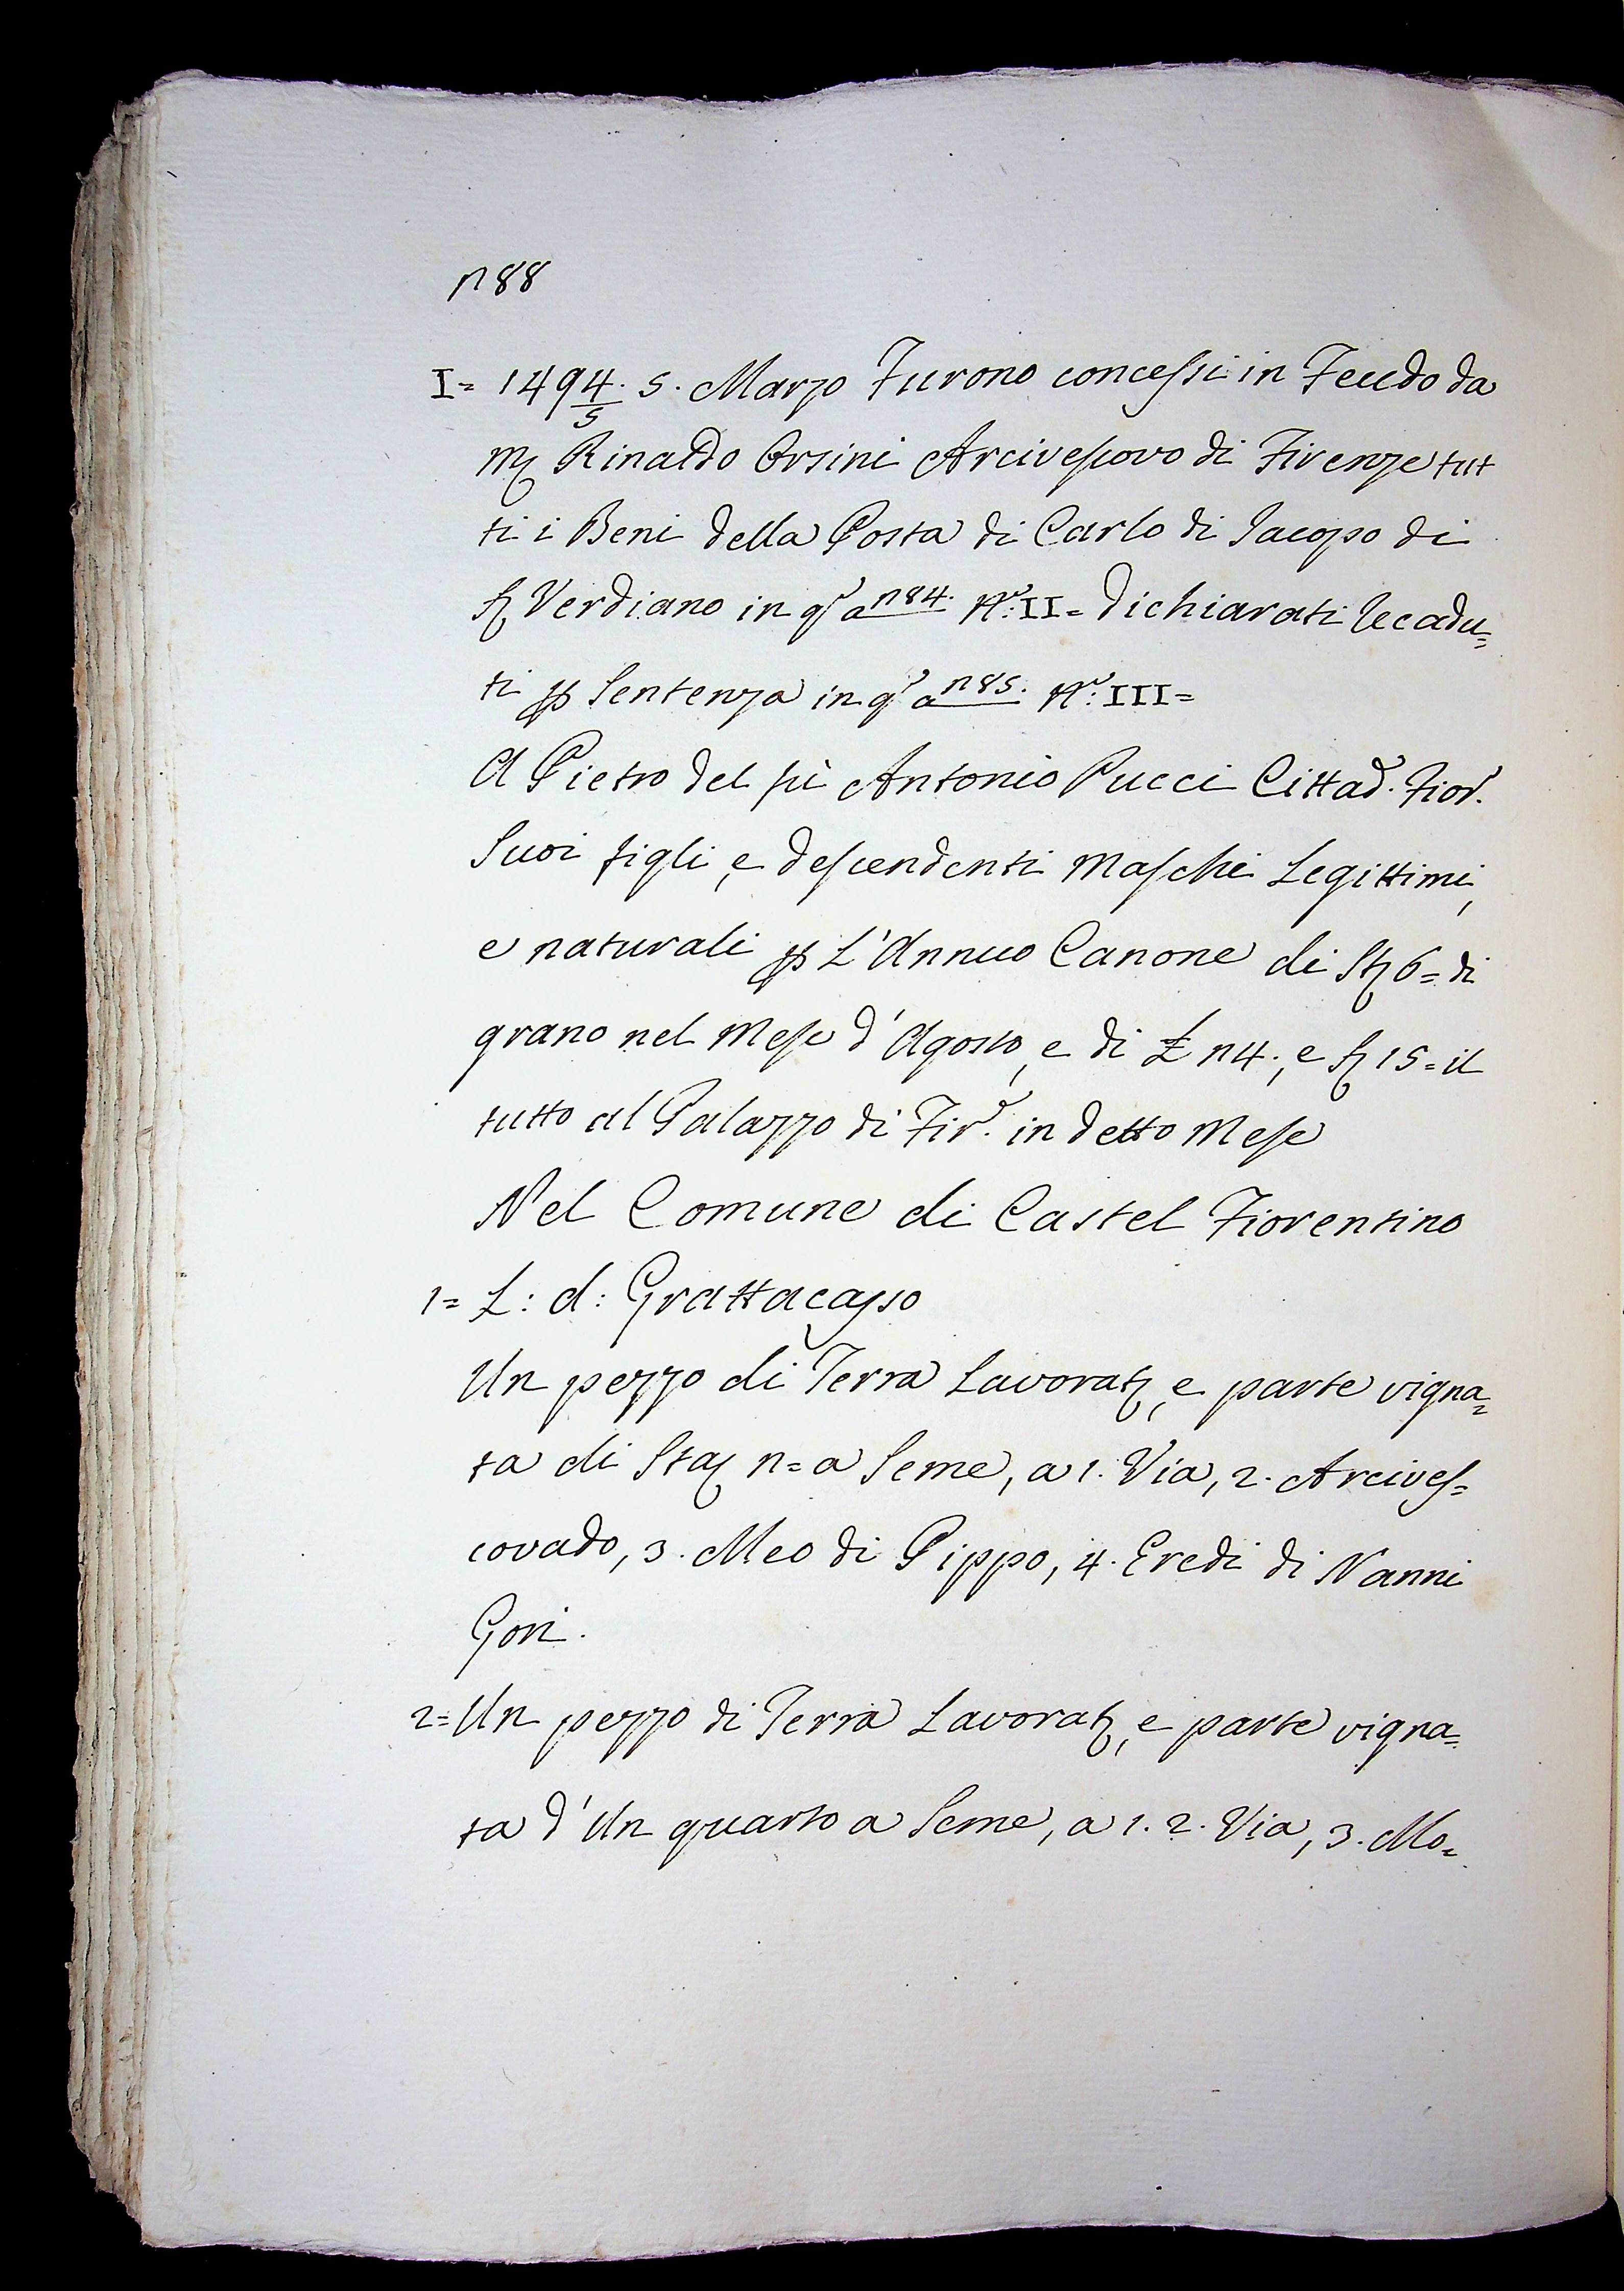 n88
I= 1494/5. 5. Marzo Furono concessi in Feudo da
Mʒ Rinaldo Orsini Arcivescovo di Firenze tut
ti i Beni della Posta di Carlo di Iacopo di
sʒ Verdiano in qto a n84. No: II= dichiarati Recadu=
ti p Sentenza in qto a n85. No: III=
A Pietro del fù Antonio Pucci Cittad. Fior.
Suoi figli, e descendenti Maschi Legittimi,
e naturali p L'Annuo Canone di Stʒ 6= di
grano nel Mese d'Agosto, e di £ n4., e sʒ 15= il
tutto al Palazzo di Fir. in detto Mese
Nel Comune di Castel Fiorentino
1= L: d: Grattacapo
Un pezzo di Terra Lavoratʒ, e parte vigna=
ta di Staʒ n= a Seme, a 1. Via, 2. Arcives=
covado, 3. Meo di Pippo, 4. Eredi di Nanni
Gori.
2= Un pezzo di Terra Lavoratʒ, e parte vigna=
ta d'Un quarto a Seme, a 1. 2. Via, 3. Mo=